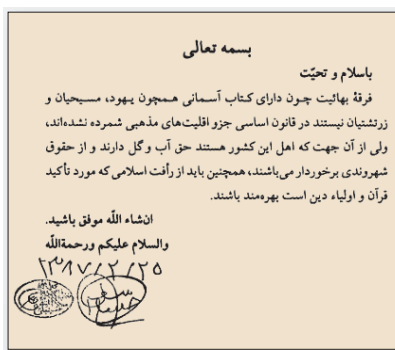 بسمه تعالی
باسلام و تحیّت
فرقهٔ بهائیت چـون دارای کـتاب آسـمانی هـمچون یـهود، مسـیحیان و
زرتشتیان نیستند در قانون اساسی جزو اقلیت‌های مذهبی شمرده نشده‌اند،
ولی از آن جهت که اهل این کشور هستند حق آب و گل دارند و از حقوق
شهروندی برخوردار می‌باشند، همچنین باید از رأفت اسلامی که مورد تأکید
قرآن و اولیاء دین است بهره‌مند باشند.
انشاء اللّه موفق باشید.
والسلام علیکم ورحمةاللّه
۱۳۸۷/۲/۲۵